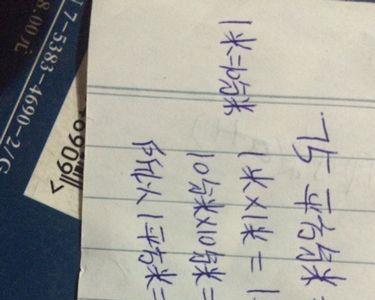 75平方分米
1米=10分米
1米×1米=1
10分米×10分米=
所以1平方米=
7-5383-4690-2/G
8.00元